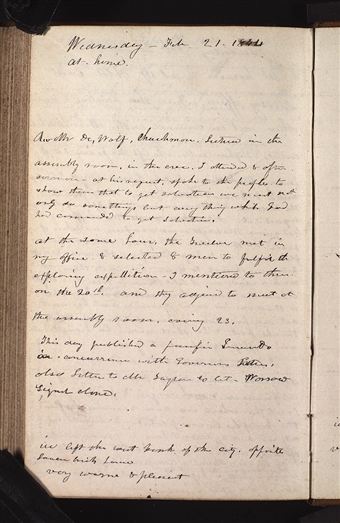 Wednesday - Feb 21. 1844
at home.
A Mr De, Wolf, Churchman, lecture in the
assembly room, in the eve. I attended & after
sermon at his request, spoke to the people to
show them that to get salvation we must not
only do somethings but everything which God
had commanded to get salvation.
at the same hour, the Twelve met in
my office & selected 8 men to fulfil the
exploring expedition - I mentioned to them
on the 20th. and they adjourned to meet at
the assembly room, evening 23.
This day published a pacific Inuendo
in concurrence with Governors letter,
also Letter to Mr Saylor to Col. Warsaw
Signal alone.
ice left the east bank of the city, opposite
Lower brick house
very warm & pleasant